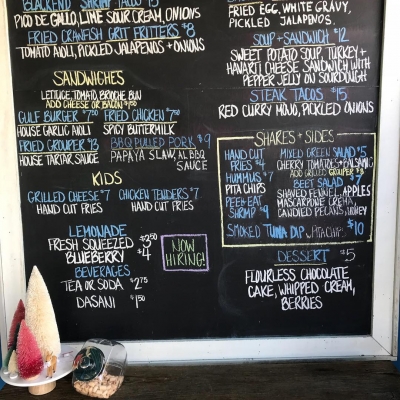 BLACKEND SHRIMP TACOS $15
PICO DE GALLO, LIME SOUR CREAM, ONIONS
FRIED CRAWFISH GRIT FRITTERS $8
TOMATO AIOLI, PICKLED JALAPENOS + ONIONS
SANDWICHES
LETTUCE, TOMATO, BRIOCHE BUN
ADD CHEESE OR BACON $1.50
GULF BURGER $7.50
HOUSE GARLIC AIOLI
FRIED CHICKEN $7.50
SPICY BUTTERMILK
FRIED GROUPER $13
HOUSE TARTAR SAUCE
BBQ PULLED PORK $9
PAPAYA SLAW, AL BBQ
SAUCE
KIDS
GRILLED CHEESE $7
HAND CUT FRIES
CHICKEN TENDERS $7
HAND CUT FRIES
LEMONADE
FRESH SQUEEZED $3.50
BLUEBERRY $4
BEVERAGES
TEA OR SODA $2.75
DASANI $1.50
NOW
HIRING!
FRIED EGG, WHITE GRAVY,
PICKLED JALAPENOS.
SOUP + SANDWICH $12
SWEET POTATO SOUP, TURKEY +
HAVARTI CHEESE SANDWICH WITH
PEPPER JELLY ON SOURDOUGH
STEAK TACOS $15
RED CURRY MOJO, PICKLED ONIONS
SHARES + SIDES
HAND CUT
FRIES $4
HUMMUS $7
PITA CHIPS
PEEL + EAT
SHRIMP $9
MIXED GREEN SALAD $5
CHERRY TOMATOES + BALSAMIC
ADD GRILLED GROUPER $8
BEET SALAD $7
SHAVED FENNEL, APPLES
MASCARPONE CREMA,
CANDIED PECANS, HONEY
SMOKED TUNA DIP, PITA CHIPS $10
DESSERT $5
FLOURLESS CHOCOLATE
CAKE, WHIPPED CREAM,
BERRIES